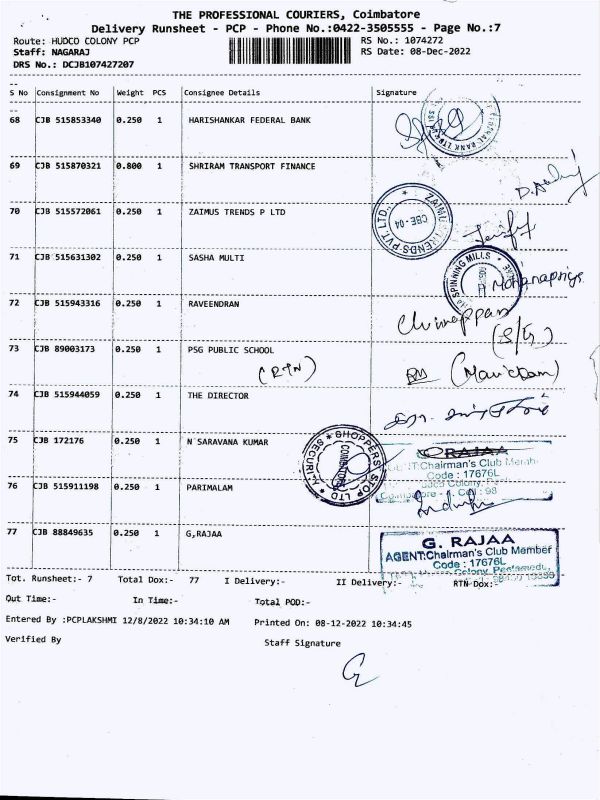 THE PROFESSIONAL COURIERS, Coimbatore
Delivery Runsheet - PCP - Phone No.:0422-3505555 - Page No.:7
Route: HUDCO COLONY PCP RS No.: 1074272
Staff: NAGARAJ RS Date: 08-Dec-2022
DRS No.: DCJB107427207
S No Consignment No Weight PCS Consignee Details Signature
68 CJB 515853340 0.250 1 HARISHANKAR FEDERAL BANK
69 CJB 515870321 0.800 1 SHRIRAM TRANSPORT FINANCE
70 CJB 515572061 0.250 1 ZAIMUS TRENDS P LTD
ZAIMUS TRENDS PVT. LTD.,
CBE - 04
71 CJB 515631302 0.250 1 SASHA MULTI
SPINNING MILLS
Mohanapriya
72 CJB 515943316 0.250 1 RAVEENDRAN
Chinnappan
73 CJB 89003173 0.250 1 PSG PUBLIC SCHOOL
(RTN) (Manickam)
74 CJB 515944059 0.250 1 THE DIRECTOR
75 CJB 172176 0.250 1 N SARAVANA KUMAR
SHOPPERS STOP LTD
SECURITY
COIMBATORE
RAJAA
Chairman's Club Memb
Code : 17676L
76 CJB 515911198 0.250 1 PARIMALAM
77 CJB 88849635 0.250 1 G,RAJAA
G. RAJAA
AGENT:Chairman's Club Member
Code : 17676L
Colony, Peelamedu,
Tot. Runsheet:- 7 Total Dox:- 77 I Delivery:- II Delivery:- RTN Dox:-
Out Time:- In Time:- Total POD:-
Entered By :PCPLAKSHMI 12/8/2022 10:34:10 AM Printed On: 08-12-2022 10:34:45
Verified By Staff Signature